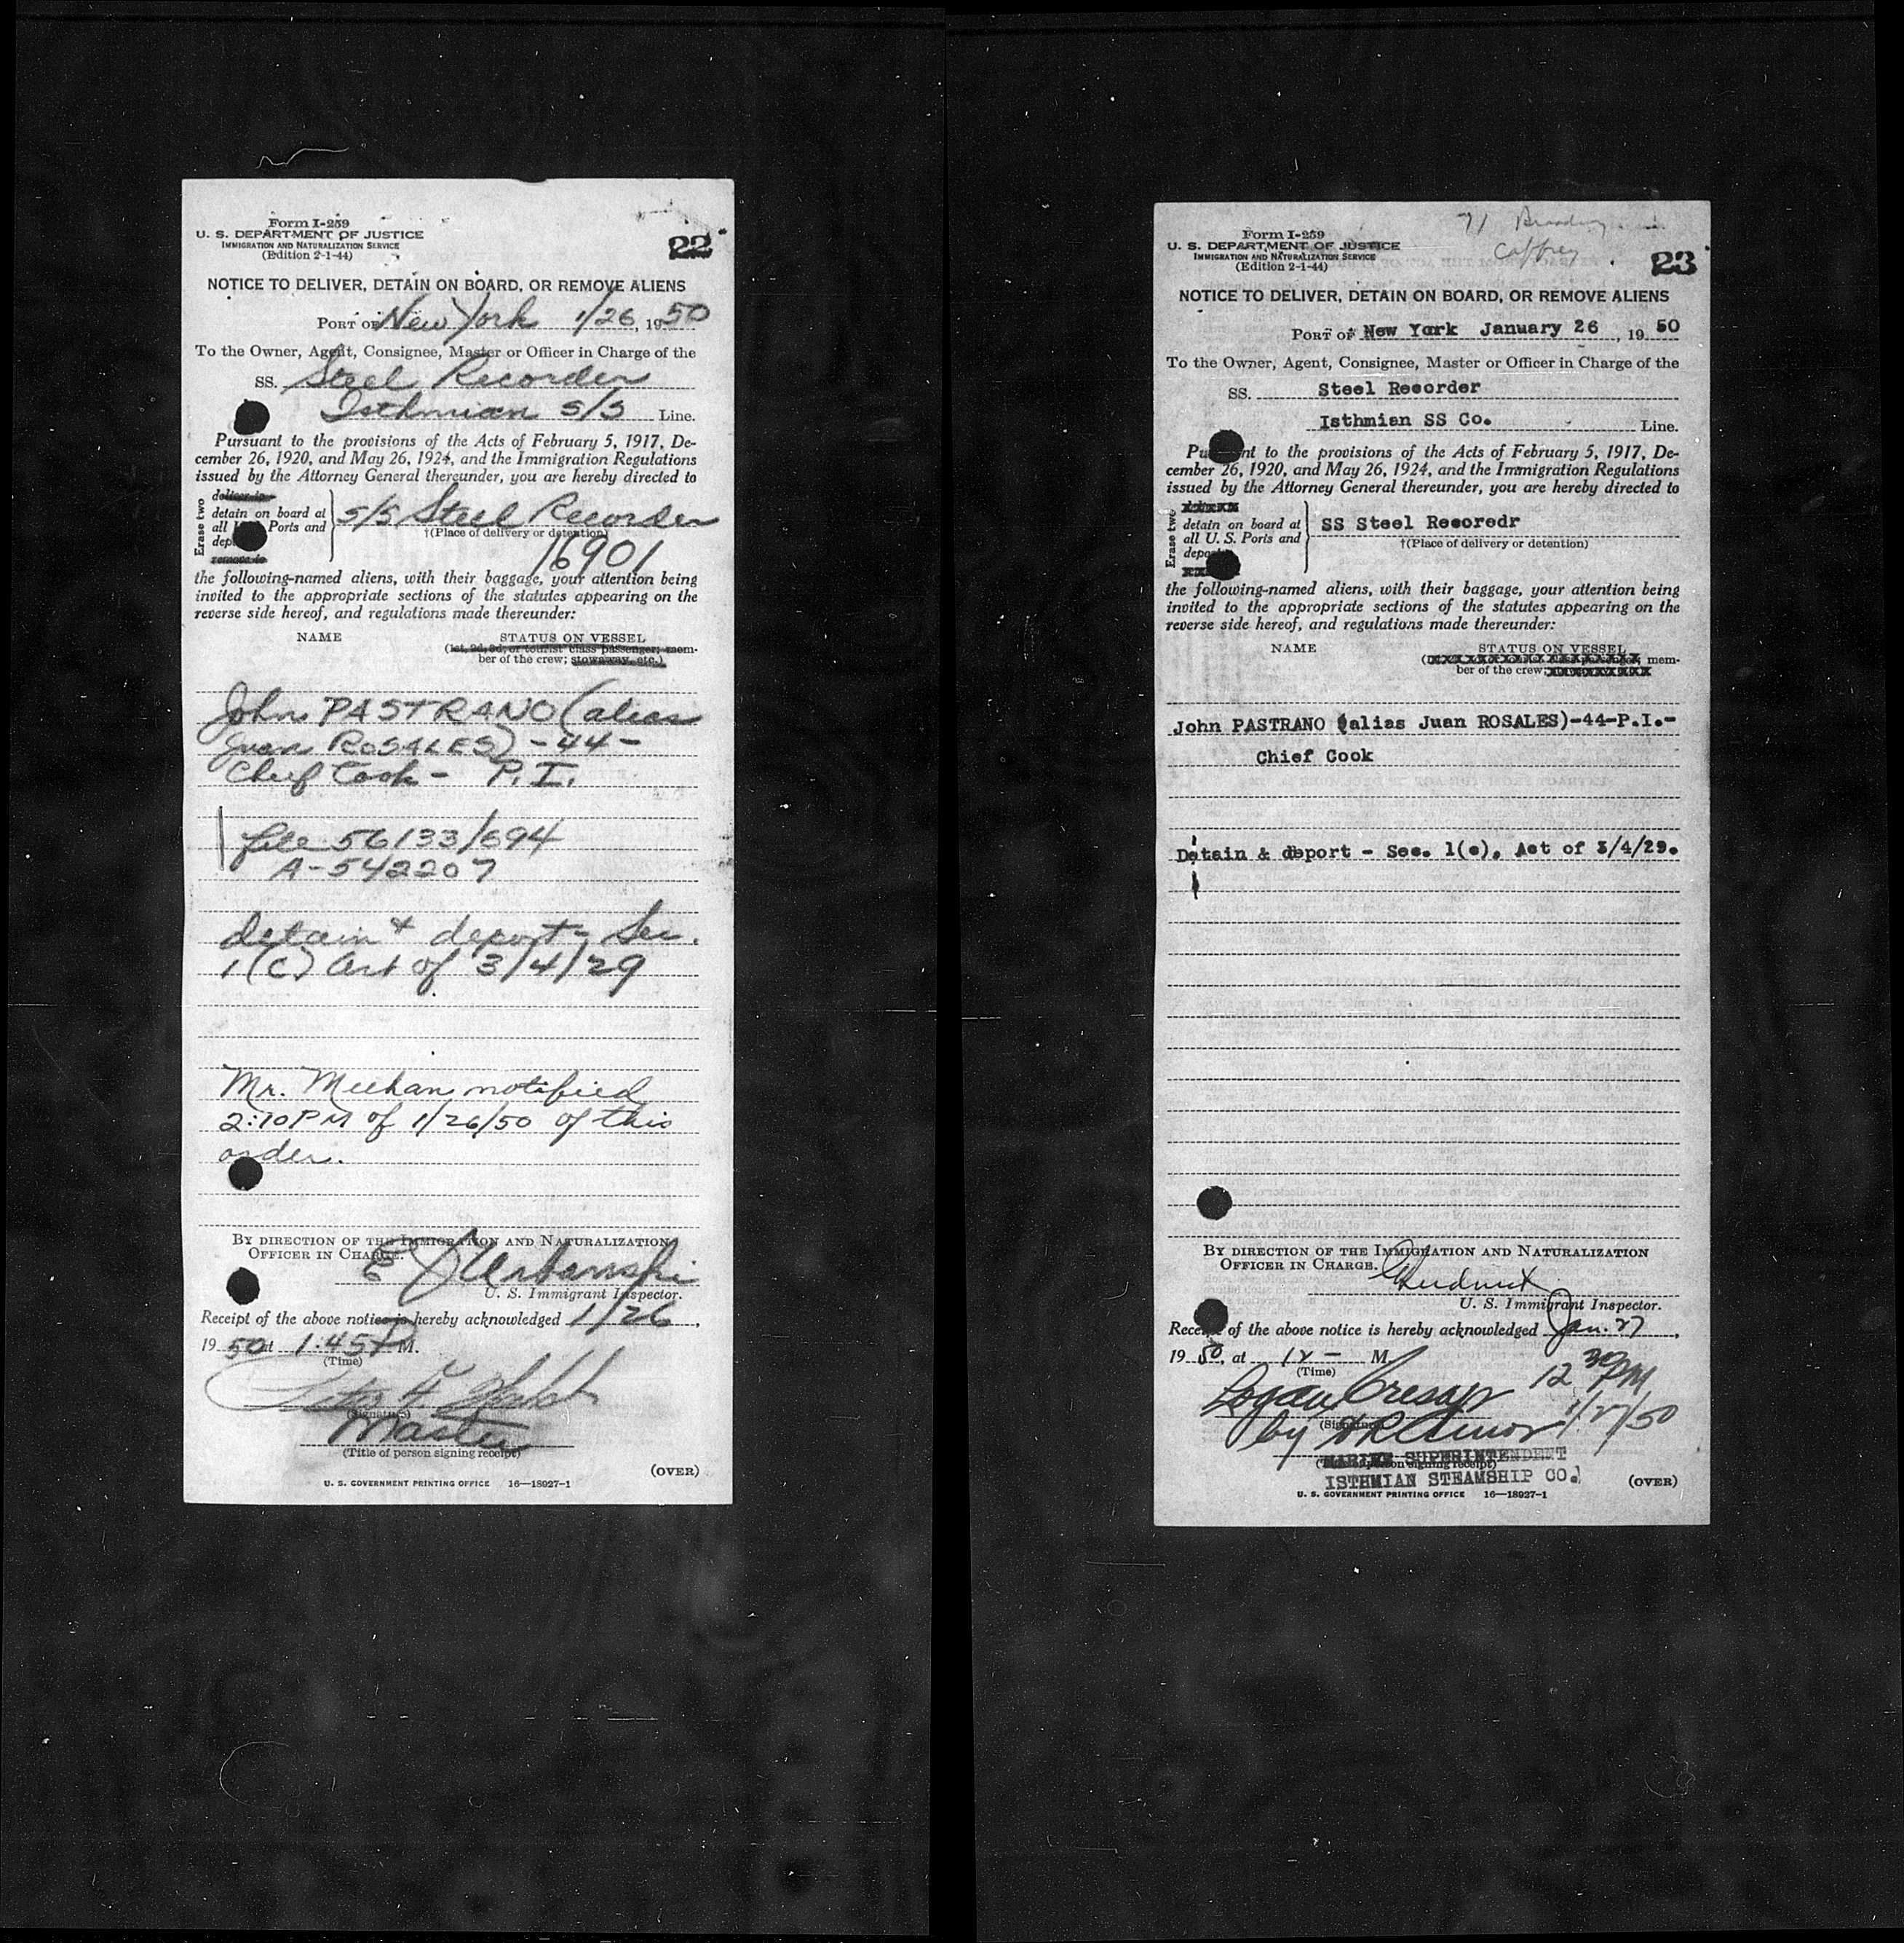 Form I-259
U. S. DEPARTMENT OF JUSTICE
IMMIGRATION AND NATURALIZATION SERVICE
(Edition 2-1-44)
22
NOTICE TO DELIVER, DETAIN ON BOARD, OR REMOVE ALIENS
PORT OF New York 1/26, 1950
To the Owner, Agent, Consignee, Master or Officer in Charge of the
SS. Steel Recorder
Isthmian S/S Line.
Pursuant to the provisions of the Acts of February 5, 1917, De-
cember 26, 1920, and May 26, 1924, and the Immigration Regulations
issued by the Attorney General thereunder, you are hereby directed to
Erase two
deliver to
detain on board at
all Ports and
dep
remove to
S/S Steel Recorder
†(Place of delivery or detention)
16901
the following-named aliens, with their baggage, your attention being
invited to the appropriate sections of the statutes appearing on the
reverse side hereof, and regulations made thereunder:
NAME STATUS ON VESSEL
(1st, 2d, 3d, or tourist class passenger; mem-
ber of the crew; stowaway, etc.)
John PASTRANO (alias
Juan ROSALES) -44-
Chief Cook - P.I.
file 56133/694
A-542207
detain & deport - Sec.
1(c) Act of 3/4/29
Mr. Meehan notified
2:10 PM of 1/26/50 of this
order.
BY DIRECTION OF THE IMMIGRATION AND NATURALIZATION
OFFICER IN CHARGE.
E J Urbanski
U. S. Immigrant Inspector.
Receipt of the above notice is hereby acknowledged 1/26,
1950 at 1:45 P M.
(Time)
(Signature)
Master
(Title of person signing receipt)
(OVER)
U. S. GOVERNMENT PRINTING OFFICE 16—18927-1
71 Broadway
Caffrey
Form I-259
U. S. DEPARTMENT OF JUSTICE
IMMIGRATION AND NATURALIZATION SERVICE
(Edition 2-1-44)
23
NOTICE TO DELIVER, DETAIN ON BOARD, OR REMOVE ALIENS
PORT OF New York January 26, 1950
To the Owner, Agent, Consignee, Master or Officer in Charge of the
SS. Steel Recorder
Isthmian SS Co. Line.
Pu nt to the provisions of the Acts of February 5, 1917, De-
cember 26, 1920, and May 26, 1924, and the Immigration Regulations
issued by the Attorney General thereunder, you are hereby directed to
Erase two
xxxxx
detain on board at
all U.S. Ports and
depo
SS Steel Recoredr
†(Place of delivery or detention)
the following-named aliens, with their baggage, your attention being
invited to the appropriate sections of the statutes appearing on the
reverse side hereof, and regulations made thereunder:
NAME STATUS ON VESSEL
mem-
ber of the crew;
John PASTRANO (alias Juan ROSALES)-44-P.I.-
Chief Cook
Detain & deport - Sec. 1(c), Act of 3/4/29.
BY DIRECTION OF THE IMMIGRATION AND NATURALIZATION
OFFICER IN CHARGE.
U. S. Immigrant Inspector.
Receipt of the above notice is hereby acknowledged Jan. 27,
1950, at 12 - M
(Time)
Logan Cresap 12 30 PM
(Signature)
by 1/27/50
MARINE SUPERINTENDENT
ISTHMIAN STEAMSHIP CO.
(OVER)
U. S. GOVERNMENT PRINTING OFFICE 16—18927-1